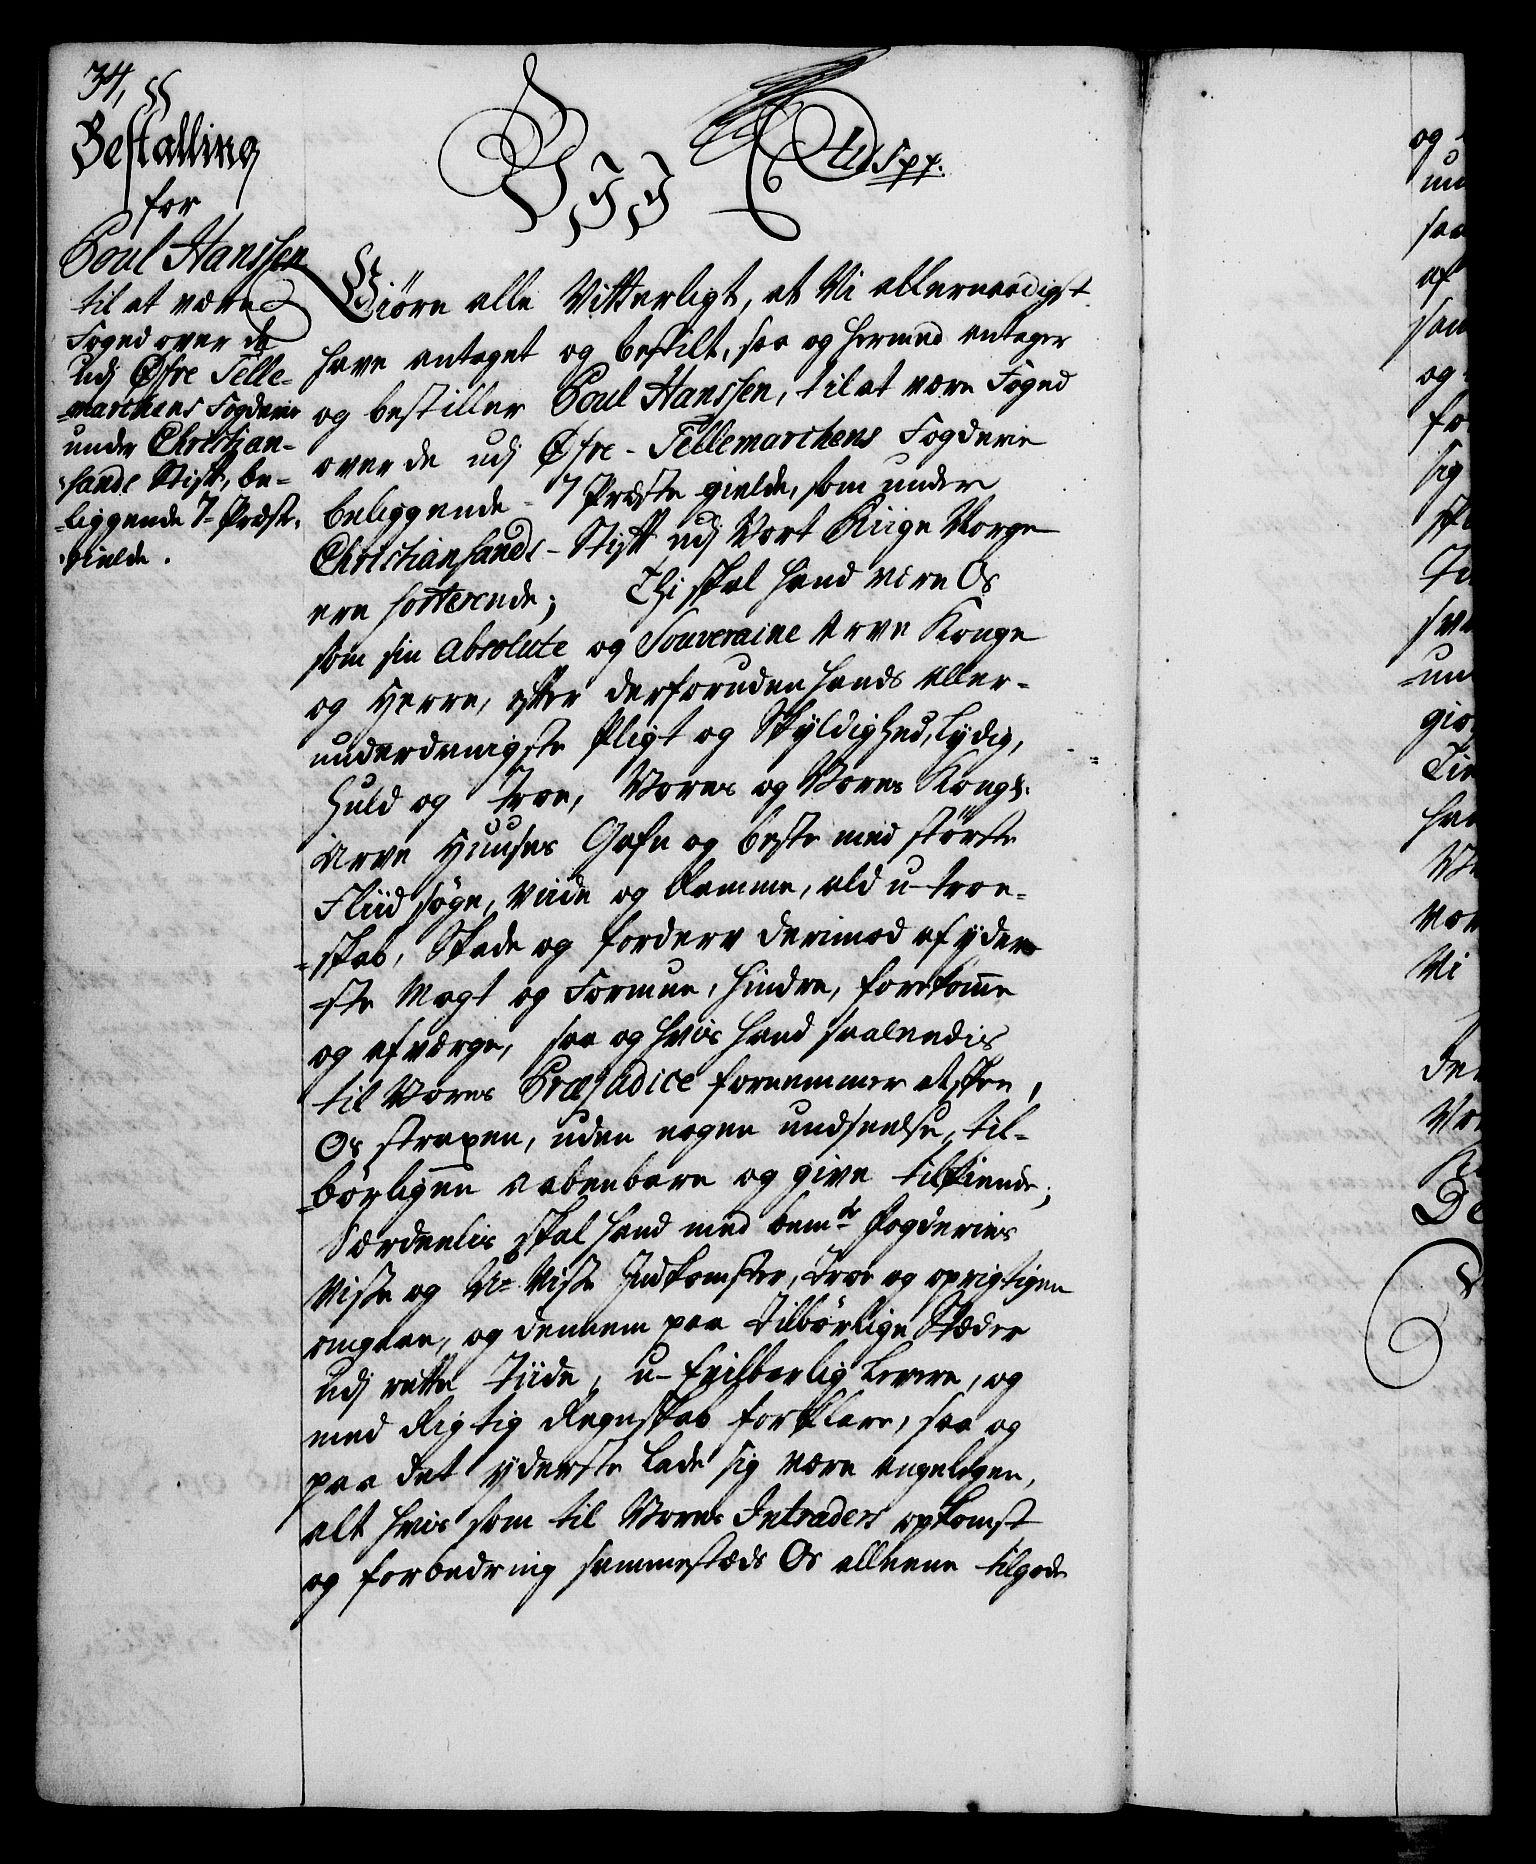 34,
Bestalling
for
Poul Hanssen
til at være
Foged over de
udj Øfre Telle-
-marchens Fogderie
under Christian-
-sands Stift, be-
-liggende 7 Præste-
-gielde.
Vjj C
Giøre alle Vitterligt, at Vi allernaadigst
have antaget og bestilt, saa og hermed antager
og bestiller Poul Hanssen, til at være Foged
over de udj Øfre-Tellemarchens Fogderie
beliggende 7 Præste gielde, som under
Christiansands-Stift udj Vort Riige Norge
ere sorterende; Thi skal hand være Os
som sin absolute og Souveraine Arve Konge
og Herre, efter derforuden hands aller-
underdanigste Pligt og Skyldighed, Lydig,
huld og troe, Vores og Vores Kongl.
Arve Huuses Gafn og beste med største
Fliid søge, viide og ramme, ald u-troe-
-skab, Skade og forderv derimod af yder-
ste Magt og Formue, hindre, forekomme
og afværge, saa og hvis hand saaledis
til Vores Præjudice fornemmer at skee,
Os straxen, uden nogen undseelse, til-
-børligen aabenbare og give tilkiende;
Særdeelis skal hand med bemte Fogderies
Visse og U-Visse Indkomster, troe og oprigtigen
omgaae, og dennem paa tilbørlige Stæder
udj rette Tiide, u-feilbarlig levere, og
med Rigtig Regnskab forklare, saa og
paa det yderste lade sig være angelegen,
alt hvis som til Vores Intraders opkomst
og forbedring sammestæds Os alleene tilgode
og
saa
af
og
sig
Vi